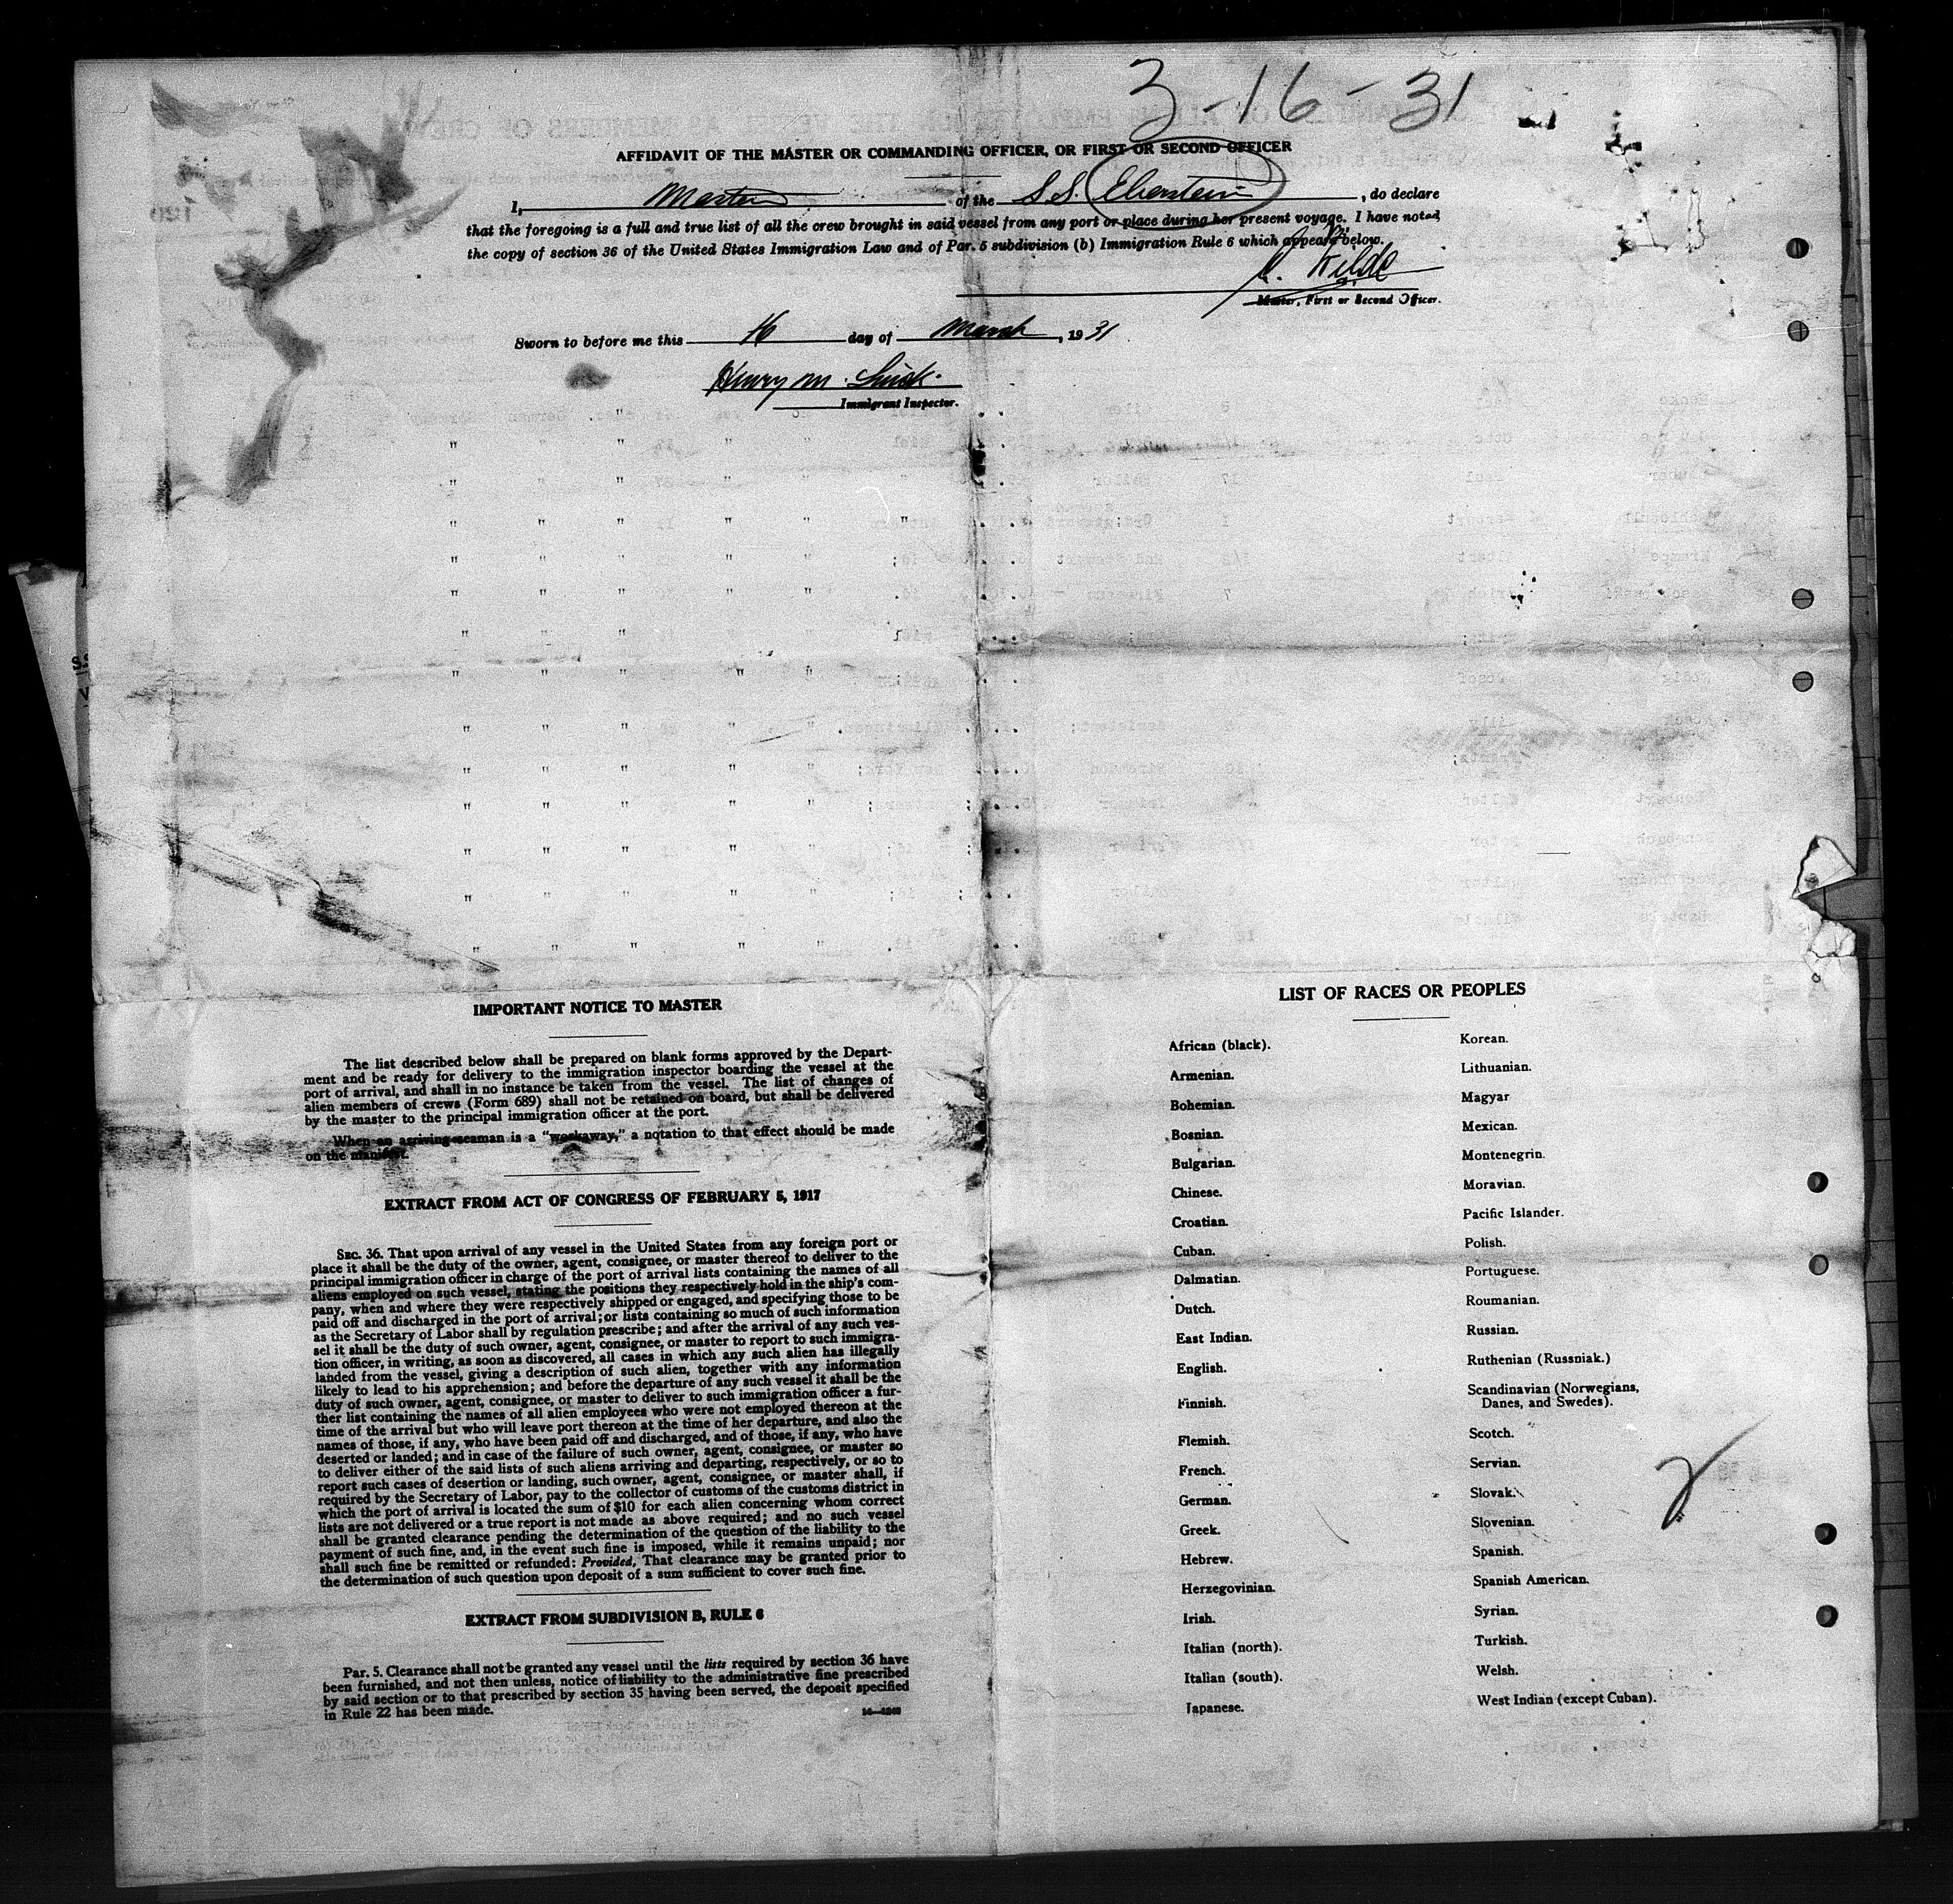 3-16-31
AFFIDAVIT OF THE MASTER OR COMMANDING OFFICER, OR FIRST OR SECOND OFFICER
I, Master of the S.S. Eberstein, do declare
that the foregoing is a full and true list of all the crew brought in said vessel from any port or place during her present voyage. I have noted
the copy of section 36 of the United States Immigration Law and of Par. 5 subdivision (b) Immigration Rule 6 which appears below.
Wilde
Master, First or Second Officer.
Sworn to before me this 16 day of March, 1931
Henry M.
Immigrant Inspector.
IMPORTANT NOTICE TO MASTER
The list described below shall be prepared on blank forms approved by the Depart-
ment and be ready for delivery to the immigration inspector boarding the vessel at the
port of arrival, and shall in no instance be taken from the vessel. The list of changes of
alien members of crews (Form 689) shall not be retained on board, but shall be delivered
by the master to the principal immigration officer at the port.
When an arriving seaman is a "workaway," a notation to that effect should be made
on the manifest.
EXTRACT FROM ACT OF CONGRESS OF FEBRUARY 5, 1917
SEC. 36. That upon arrival of any vessel in the United States from any foreign port or
place it shall be the duty of the owner, agent, consignee, or master thereof to deliver to the
principal immigration officer in charge of the port of arrival lists containing the names of all
aliens employed on such vessel, stating the positions they respectively hold in the ship's com-
pany, when and where they were respectively shipped or engaged, and specifying those to be
paid off and discharged in the port of arrival; or lists containing so much of such information
as the Secretary of Labor shall by regulation prescribe; and after the arrival of any such ves-
sel it shall be the duty of such owner, agent, consignee, or master to report to such immigra-
tion officer, in writing, as soon as discovered, all cases in which any such alien has illegally
landed from the vessel, giving a description of such alien, together with any information
likely to lead to his apprehension; and before the departure of any such vessel it shall be the
duty of such owner, agent, consignee, or master to deliver to such immigration officer a fur-
ther list containing the names of all alien employees who were not employed thereon at the
time of the arrival but who will leave port thereon at the time of her departure, and also the
names of those, if any, who have been paid off and discharged, and of those, if any, who have
deserted or landed; and in case of the failure of such owner, agent, consignee, or master so
to deliver either of the said lists of such aliens arriving and departing, respectively, or so to
report such cases of desertion or landing, such owner, agent, consignee, or master shall, if
required by the Secretary of Labor, pay to the collector of customs of the customs district in
which the port of arrival is located the sum of $10 for each alien concerning whom correct
lists are not delivered or a true report is not made as above required; and no such vessel
shall be granted clearance pending the determination of the question of the liability to the
payment of such fine, and, in the event such fine is imposed, while it remains unpaid; nor
shall such fine be remitted or refunded: Provided, That clearance may be granted prior to
the determination of such question upon deposit of a sum sufficient to cover such fine.
EXTRACT FROM SUBDIVISION B, RULE 6
Par. 5. Clearance shall not be granted any vessel until the lists required by section 36 have
been furnished, and not then unless, notice of liability to the administrative fine prescribed
by said section or to that prescribed by section 35 having been served, the deposit specified
in Rule 22 has been made.
LIST OF RACES OR PEOPLES
African (black).
Armenian.
Bohemian.
Bosnian.
Bulgarian.
Chinese.
Croatian.
Cuban.
Dalmatian.
Dutch.
East Indian.
English.
Finnish.
Flemish.
French.
German.
Greek.
Hebrew.
Herzegovinian.
Irish.
Italian (north).
Italian (south).
Japanese.
Korean.
Lithuanian.
Magyar
Mexican.
Montenegrin.
Moravian.
Pacific Islander.
Polish.
Portuguese.
Roumanian.
Russian.
Ruthenian (Russniak.)
Scandinavian (Norwegians,
Danes, and Swedes).
Scotch.
Servian.
Slovak.
Slovenian.
Spanish.
Spanish American.
Syrian.
Turkish.
Welsh.
West Indian (except Cuban).